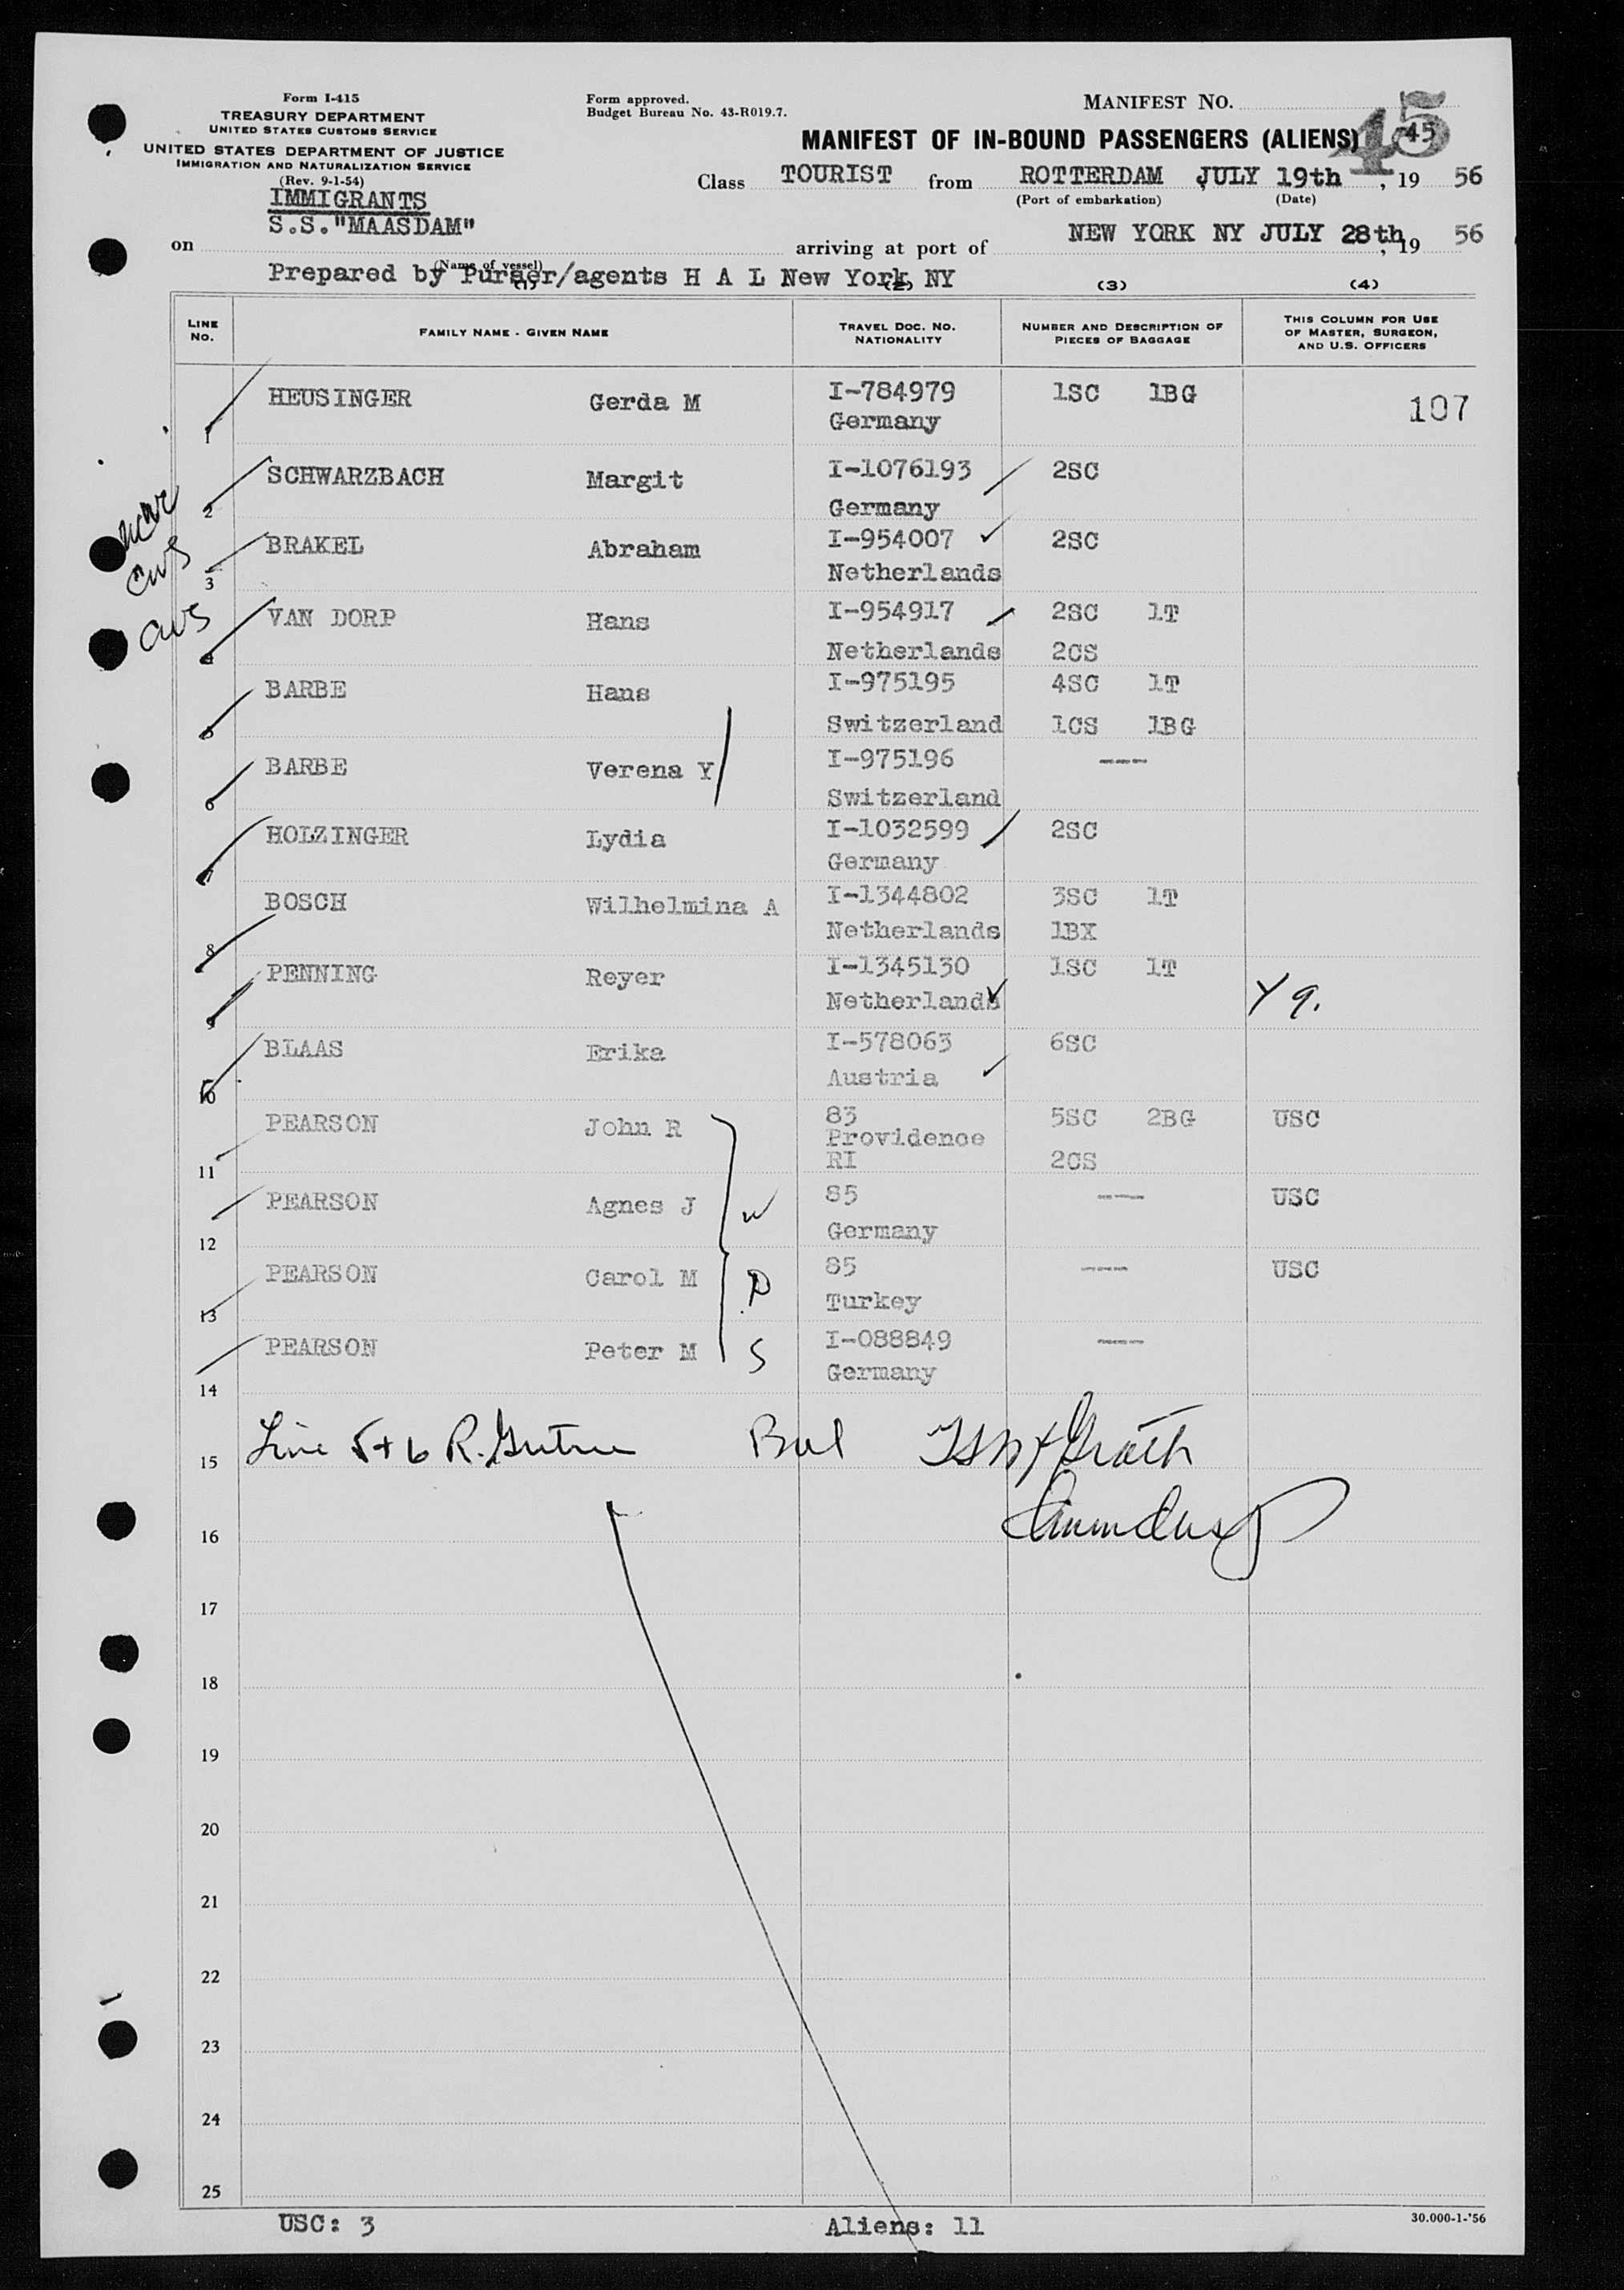 Form I-415
TREASURY DEPARTMENT
UNITED STATES CUSTOMS SERVICE
UNITED STATES DEPARTMENT OF JUSTICE
IMMIGRATION AND NATURALIZATION SERVICE
(Rev. 9-1-54)
IMMIGRANTS
Form approved.
Budget Bureau No. 43-R019.7.
MANIFEST NO. 45
45
MANIFEST OF IN-BOUND PASSENGERS (ALIENS)
Class TOURIST from ROTTERDAM JULY 19th, 19 56
(Port of embarkation) (Date)
on S.S."MAASDAM" arriving at port of NEW YORK NY JULY 28th, 19 56
(Name of vessel)
Prepared by Purser/agents H A L New York NY
(1) (2) (3) (4)
LINE NO. FAMILY NAME - GIVEN NAME TRAVEL DOC. NO. NATIONALITY NUMBER AND DESCRIPTION OF PIECES OF BAGGAGE THIS COLUMN FOR USE OF MASTER, SURGEON, AND U.S. OFFICERS
1 HEUSINGER Gerda M I-784979 1SC 1BG 107
Germany
2 SCHWARZBACH Margit I-1076193 2SC
Germany
3 BRAKEL Abraham I-954007 2SC
Netherlands
4 VAN DORP Hans I-954917 2SC 1T
Netherlands 2CS
5 BARBE Hans I-975195 4SC 1T
Switzerland 1CS 1BG
6 BARBE Verena Y I-975196 ----
Switzerland
7 HOLZINGER Lydia I-1032599 2SC
Germany
8 BOSCH Wilhelmina A I-1344802 3SC 1T
Netherlands 1BX
9 PENNING Reyer I-1345130 1SC 1T
Netherlands Y 9.
10 BLAAS Erika I-578063 6SC
Austria
11 PEARSON John R 83 5SC 2BG USC
Providence
RI 2CS
12 PEARSON Agnes J W 85 ---- USC
Germany
13 PEARSON Carol M D 85 ---- USC
Turkey
14 PEARSON Peter M S I-088849 ----
Germany
15 Line 5+6 R.
16
17
18
19
20
21
22
23
24
25
USC: 3 Aliens: 11
30.000-1-'56